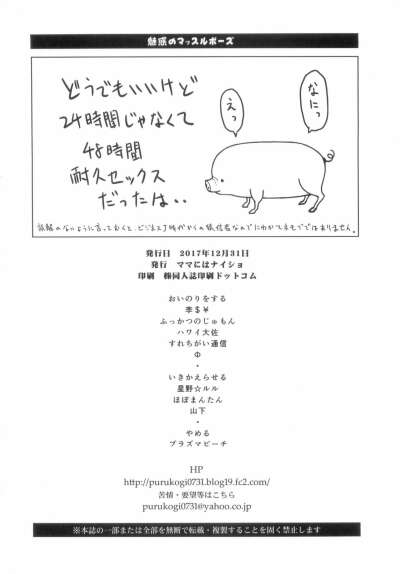 魅惑のマッスルポーズ
どうでもいいけど
24時間じゃなくて
48時間
耐久セックス
だったは・・
なにっ
えっ
発行日 2017年12月31日
発行 ママにはナイショ
印刷 ㈱同人誌印刷ドットコム
おいのりをする
季$¥
ふっかつのじゅもん
ハワイ大佐
すれちがい通信
Φ
・
いきかえらせる
星野☆ルル
ほぼまんたん
山下
・
やめる
プラズマピーチ
HP
http://purukogi0731.blog19.fc2.com/
苦情・要望等はこちら
purukogi0731@yahoo.co.jp
※本誌の一部または全部を無断で転載・複製することを固く禁止します